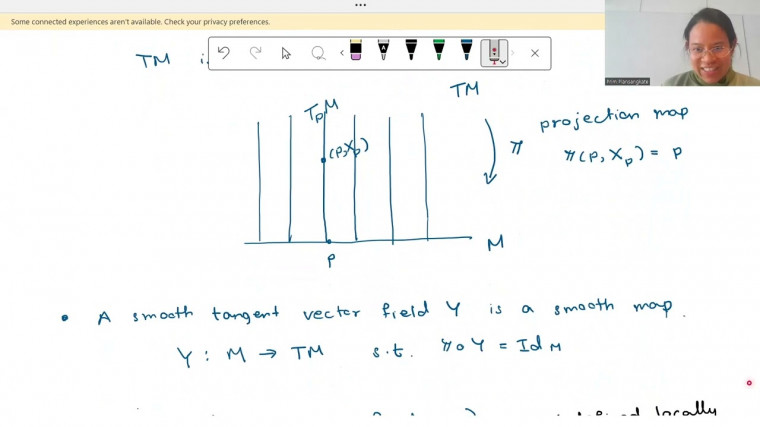 Some connected experiences aren't available. Check your privacy preferences.
TM
Prim Plansangkate
TM
T_pM
projection map
(p, X_p)
π
π(p, X_p) = p
M
p
• A smooth tangent vector field Y is a smooth map.
Y : M → TM s.t. π∘Y = Id_M
defined locally